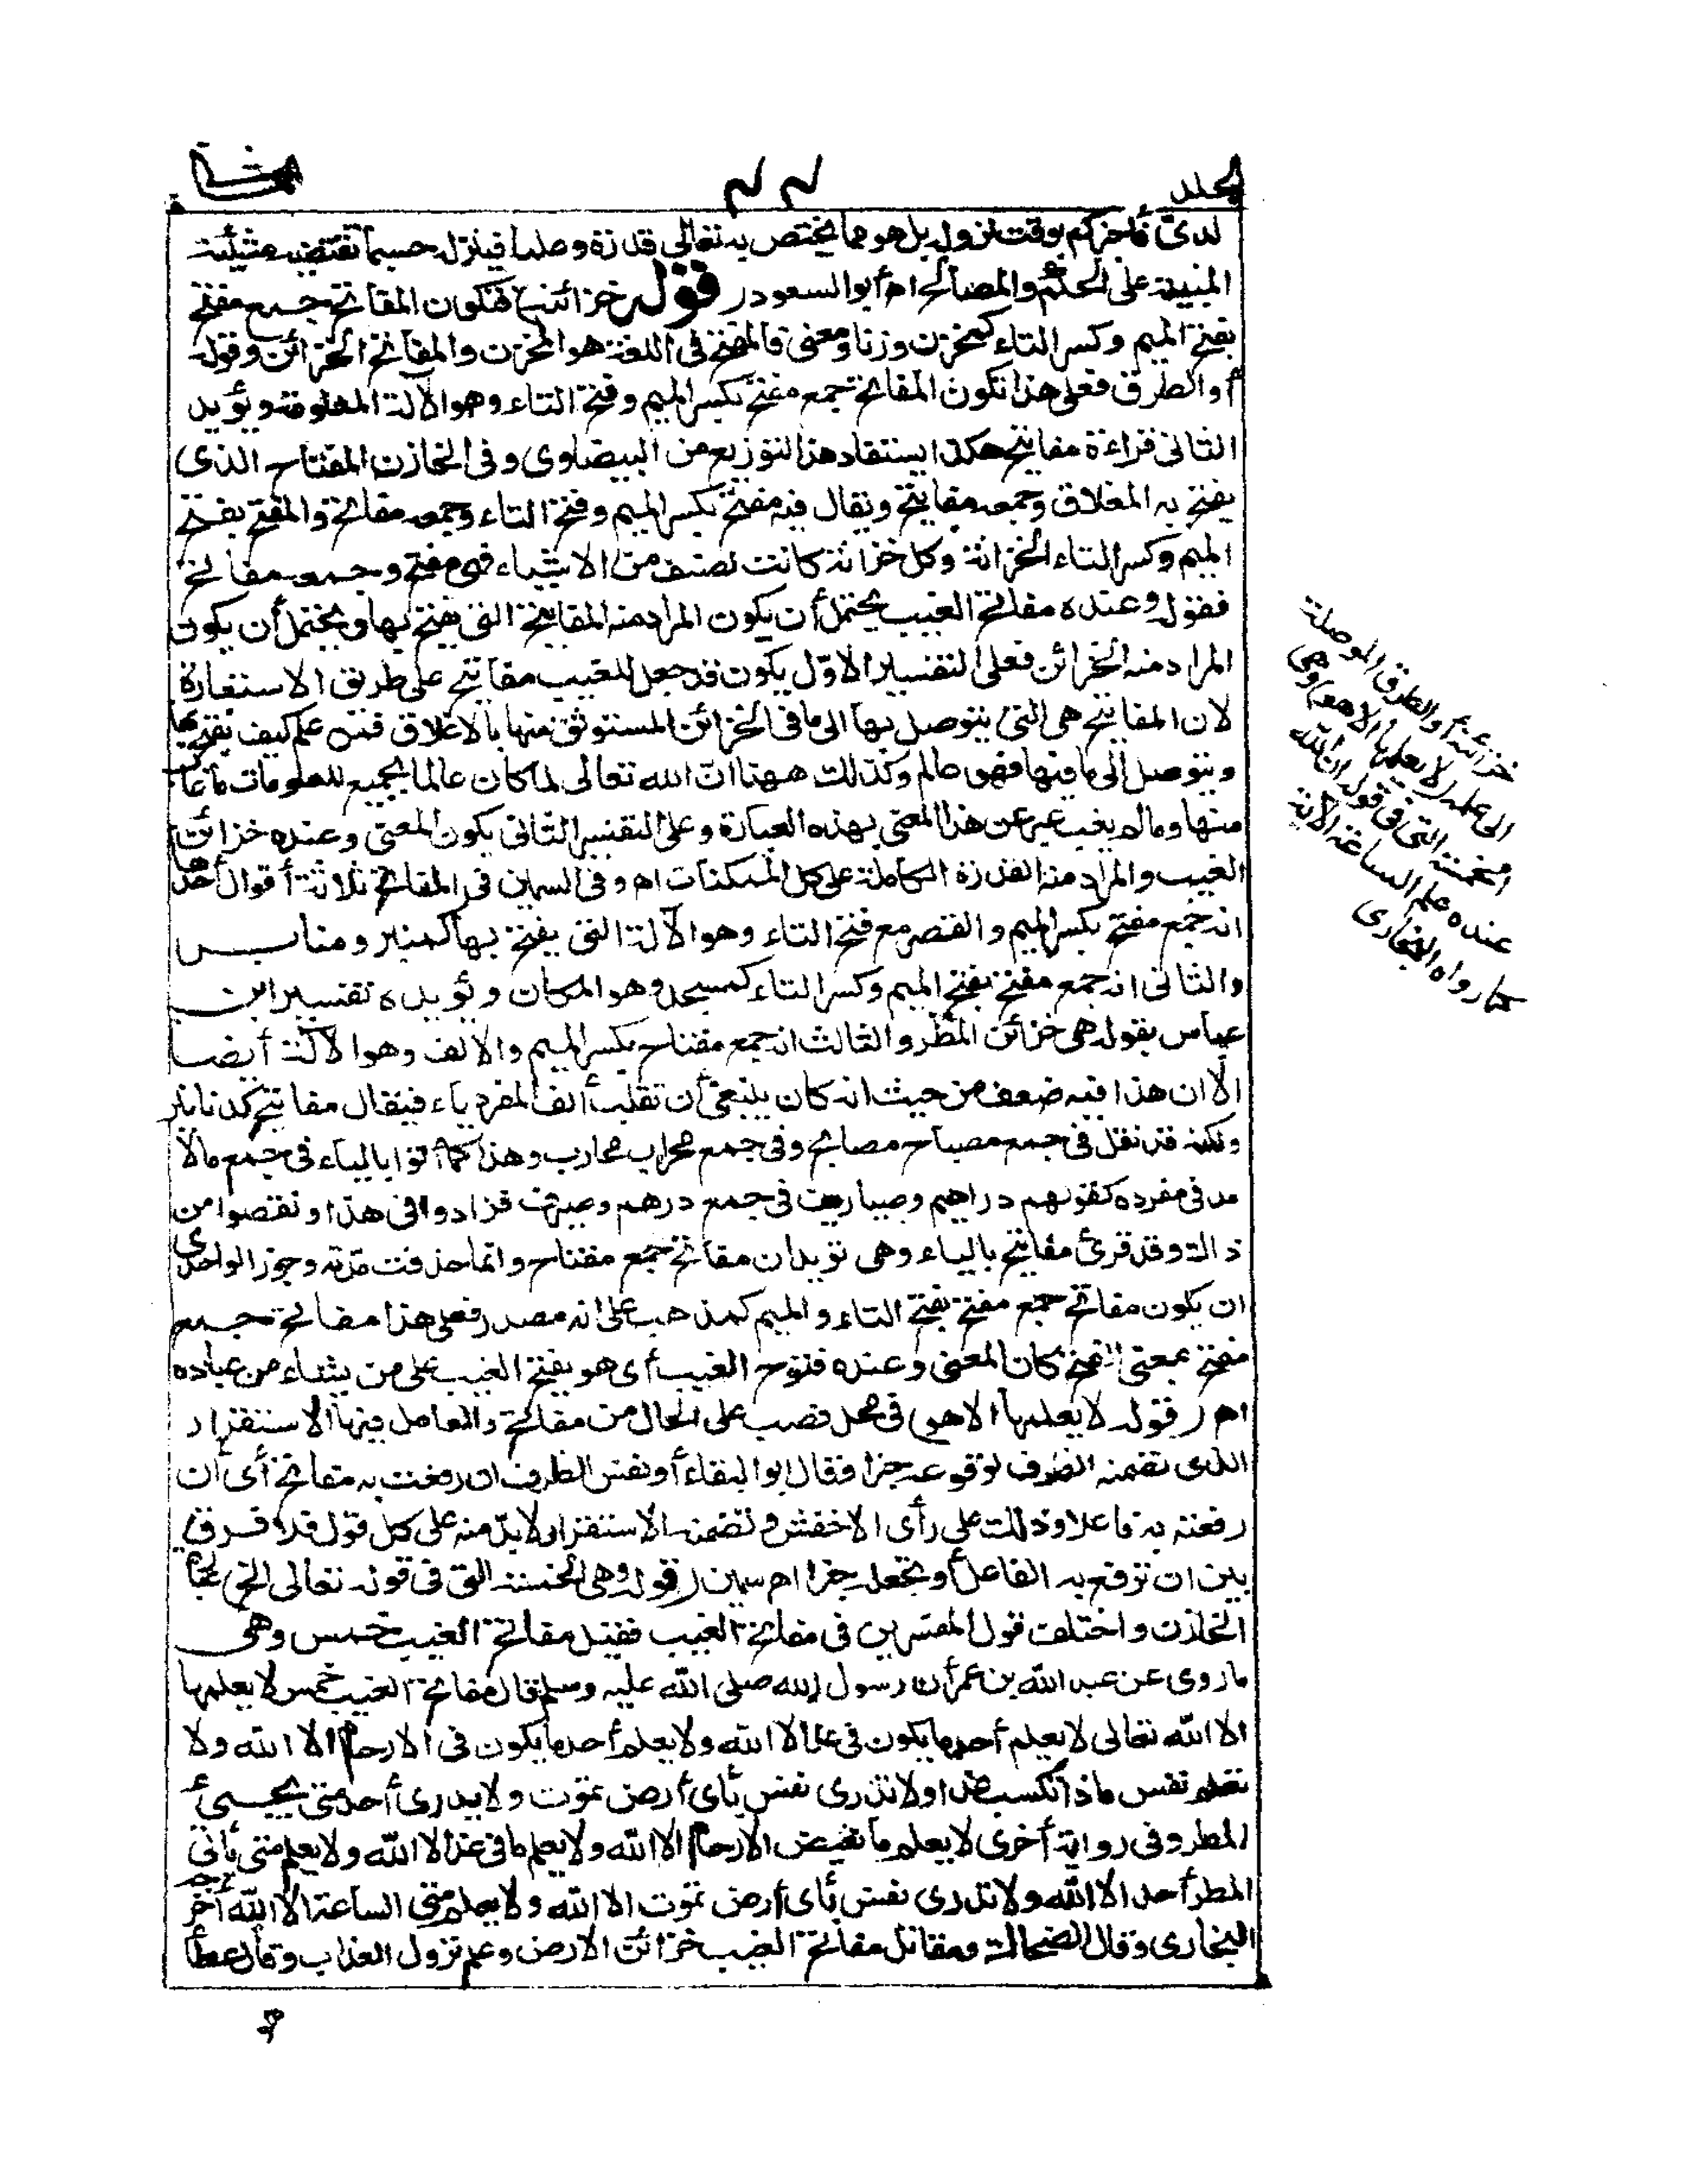 المجلد ٢٢ الثا
لدىّ فأخبركم بوقت نزوله بل هو مما يختص به تعالى قدرة وعلما فينزله حسبما تقتضيه مشيئته
المبنية على الحكم والمصالح اهـ أبو السعود ر قوله خزائنه) فتكون المفاتح جمع مفتح
بفتح الميم وكسر التاء كمخزن وزنا ومعنى فالمفتح فى اللغة هو المخزن والمفاتح الخزائن وقوله
أو الطرق فعلى هذا تكون المفاتح جمع مفتح بكسر الميم وفتح التاء وهو الآلة المعلومة ويؤيد
الثانى قراءة مفاتيح هكذا يستفاد هذا التوزيع من البيضاوى وفى الخازن المفتاح الذى
يفتح به المغلاق وجمعه مفاتيح ويقال فيه مفتح بكسر الميم وفتح التاء وجمعه مفاتح والمفتح بفتح
الميم وكسر التاء الخزانة وكل خزانة كانت لصنف من الاشياء فهى مفتح وجمعه مفاتح
فقوله وعنده مفاتح الغيب يحتمل أن يكون المراد منه المفاتيح التى يفتح بها ويحتمل أن يكون
المراد منه الخزائن فعلى التفسير الاوّل يكون قد جعل للغيب مفاتيح على طريق الاستعارة
لان المفاتيح هى التى يتوصل بها الى ما فى الخزائن المستوثق منها بالاغلاق فمن علم كيف يفتح بها
ويتوصل الى ما فيها فهو عالم وكذلك ههنا ان الله تعالى لما كان عالما بجميع المعلومات ما غاب
منها وما لم يغب عبر عن هذا المعنى بهذه العبارة وعلى التفسير الثانى يكون المعنى وعنده خزائن
الغيب والمراد منه القدرة الكاملة على كل الممكنات اهـ وفى السمين فى المفاتح ثلاثة أقوال أحدها
انه جمع مفتح بكسر الميم والقصر مع فتح التاء وهو الآلة التى يفتح بها كمنبر ومنابر
والثانى انه جمع مفتح بفتح الميم وكسر التاء كمسجد وهو المكان ويؤيده تفسير ابن
عباس بقوله هى خزائن المطر والثالث انه جمع مفتاح بكسر الميم والالف وهو الآلة أيضا
الاان هذا فيه ضعف من حيث انه كان ينبغى أن تقلب ألف المفرد ياء فيقال مفاتيح كدنانير
ولكنه قد نقل فى جمع مصباح مصابح وفى جمع محراب محارب وهذا كما أتوا بالياء فى جمع ما لا
مد فى مفرده كقولهم دراهيم وصياريف فى جمع درهم وصيرف فزادوا فى هذا ونقصوا من
ذالك وقد قرئ مفاتيح بالياء وهى تؤيد ان مفاتح جمع مفتاح وانما حذفت مدّته وجوز الواحدى
ان يكون مفاتح جمع مفتح بفتح التاء والميم كمذهب على انه مصدر فعلى هذا مفاتح جمع
مفتح بمعنى الفتح كان المعنى وعنده فتوح الغيب أى هو يفتح الغيب على من يشاء من عباده
اهـ ر قوله لا يعلمها الا هو) فى محل نصب على الحال من مفاتح والعامل فيها الاستقرار
الذى تضمنه الظرف لوقوعه خبرا فقال ابو البقاء أو نفس الظرف ان رفعت به مفاتح أى ان
رفعته به فاعلا وذلك على رأى الاخفش وتضمنه الاستقرار لابدّ منه على كل قول فلا فرق
بين ان ترفع به الفاعل أو تجعله خبرا اهـ سمين ر قوله وهى الخمسة التى فى قوله تعالى الخ) عبا
الخازن واختلف قول المفسرين فى مفاتح الغيب فقيل مفاتح الغيب خمس وهى
ما روى عن عبد الله بن عمر أن رسول الله صلى الله عليه وسلم قال مفاتح الغيب خمس لا يعلمها
الا الله تعالى لا يعلم أحد ما يكون فى غد الا الله ولا يعلم أحد ما يكون فى الارحام الا الله ولا
تعلم نفس ماذا تكسب غدا ولا تدرى نفس بأى أرض تموت ولا يدرى أحد متى يجيئ
المطر وفى رواية أخرى لا يعلم ما تغيض الارحام الا الله ولا يعلم ما فى غد الا الله ولا يعلم متى يأتى
المطر أحد الا الله ولا تدرى نفس بأى أرض تموت الا الله ولا يعلم متى الساعة الا الله أخرجه
البخارى وقال الضحاك ومقاتل مفاتح الغيب خزائن الارض وعلم نزول العذاب وقال عطا
خزائنه أو الطرق الموصلة
الى علمه لا يعلمها الا هو) وهى
الخمسة التى فى قوله ان الله
عنده علم الساعة الآية
كما رواه البخارى